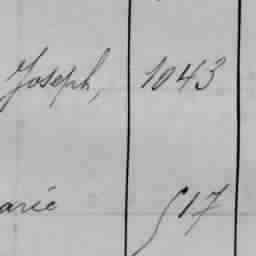 Joseph, 1043
arie 517